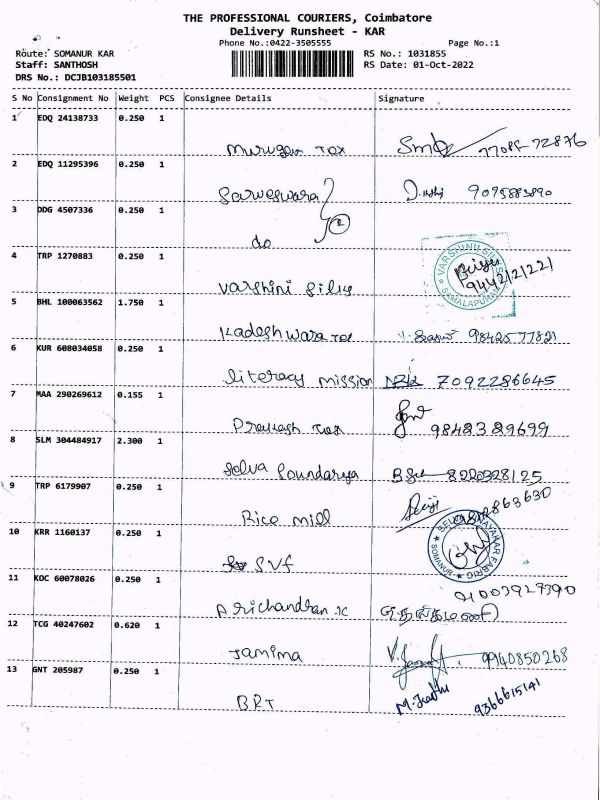 THE PROFESSIONAL COURIERS, Coimbatore
Delivery Runsheet - KAR
Phone No.:0422-3505555 Page No.:1
Route: SOMANUR KAR RS No.: 1031855
Staff: SANTHOSH RS Date: 01-Oct-2022
DRS No.: DCJB103185501
S No Consignment No Weight PCS Consignee Details Signature
1 EDQ 24138733 0.250 1
Murugan Tex
2 EDQ 11295396 0.250 1
Sarweswara 9095883890
3 DDG 4507336 0.250 1
do
4 TRP 1270883 0.250 1
Varshini Silks VARSHINI SILKS SAMALAPURAM 9442121221
5 BHL 100063562 1.750 1
Kadeshwara Tex 9842577821
6 KUR 608034058 0.250 1
literacy mission 7092286645
7 MAA 290269612 0.155 1
Prakash Tex 9848389699
8 SLM 304484917 2.300 1
Selva Soundarya 8220328125
9 TRP 6179907 0.250 1
Rice mill
10 KRR 1160137 0.250 1
SVF SOMANUR
11 KOC 60078026 0.250 1
Arichandran .K
12 TCG 40247602 0.620 1
Jamima 9940850268
13 GNT 205987 0.250 1
BRT 9366615141